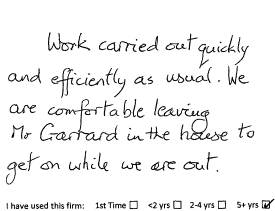 Work carried out quickly
and efficiently as usual. We
are comfortable leaving
Mr Garrard in the house to
get on while we are out.
I have used this firm: 1st Time ☐ <2 yrs ☐ 2-4 yrs ☐ 5+ yrs ☑